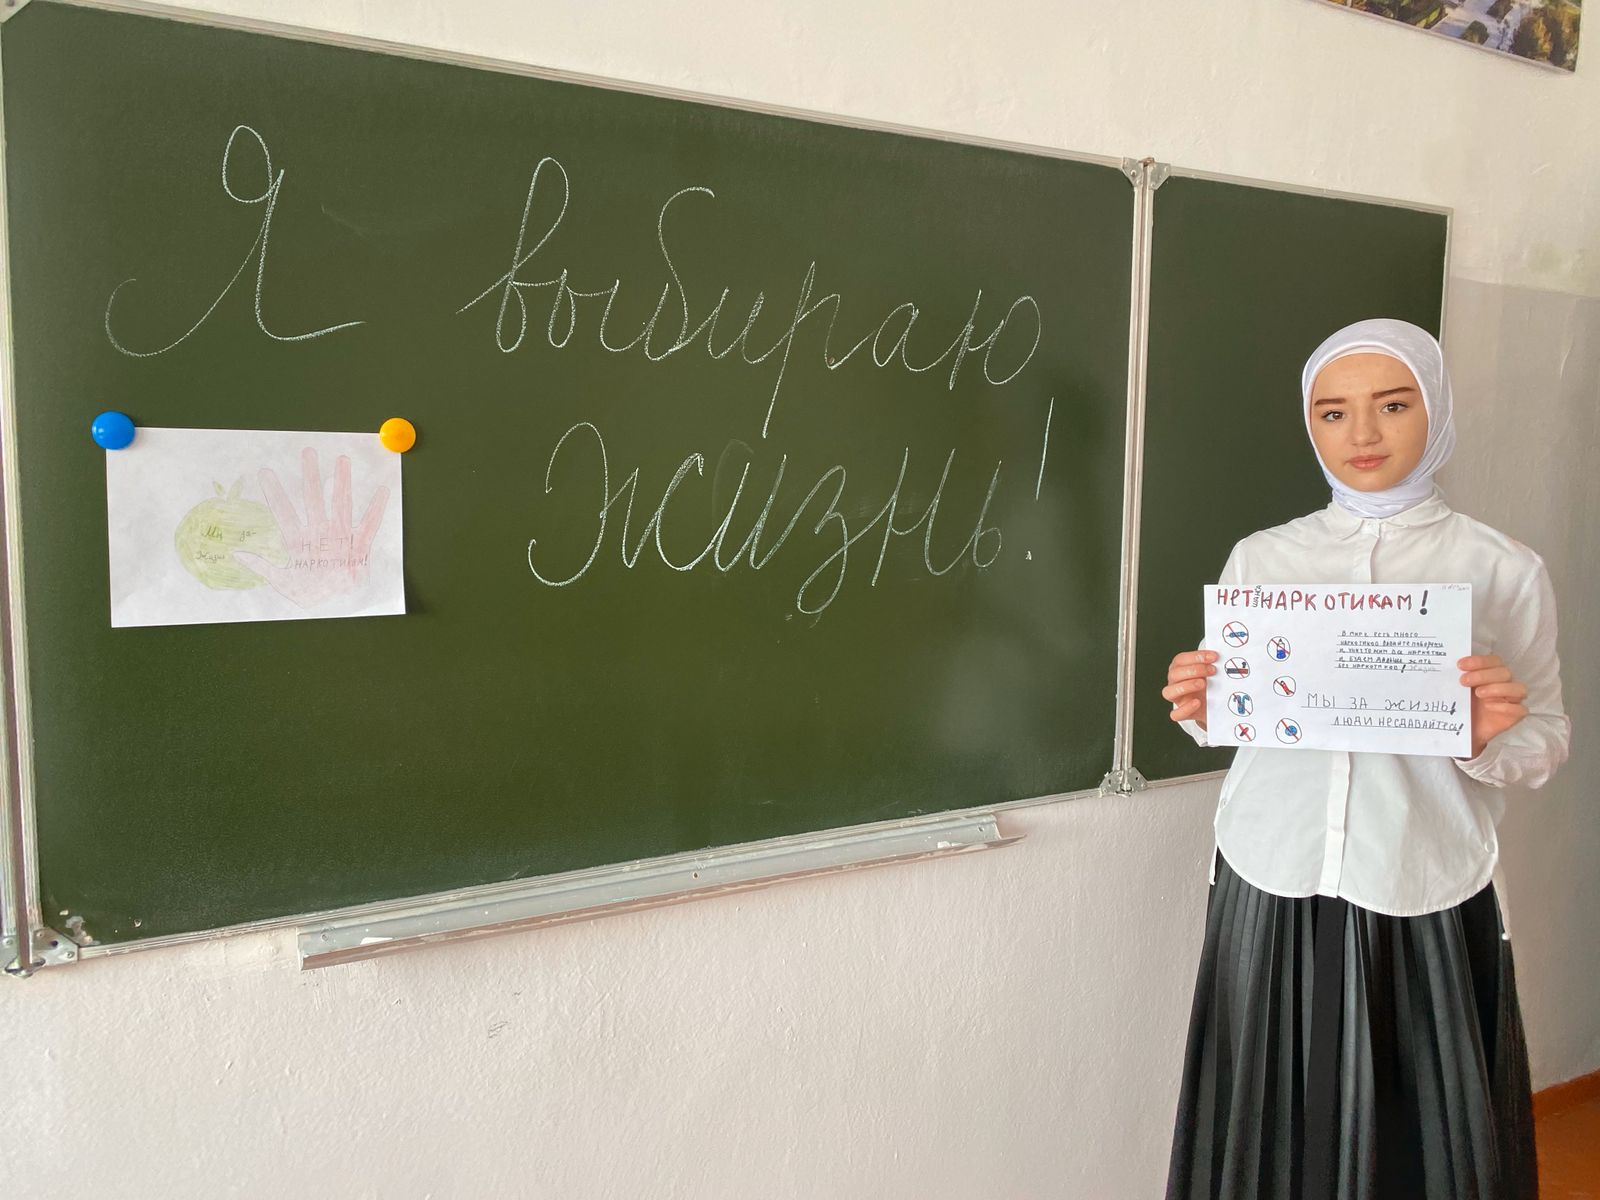 Я выбираю
жизнь!
Мы за
жизнь
НЕТ!
НАРКОТИКАМ!
НЕТ НАРКОТИКАМ!
В МИРЕ ЕСТЬ МНОГО
НАРКОТИКОВ ДАВАЙТЕ ПОБОРЕМ
И УНИЧТОЖИМ ВСЕ НАРКОТИКИ
И БУДЕМ ДАЛЬШЕ ЖИТЬ
БЕЗ НАРКОТИКОВ! Жизнь
МЫ ЗА ЖИЗНЬ!
ЛЮДИ НЕСДАВАЙТЕСЬ!